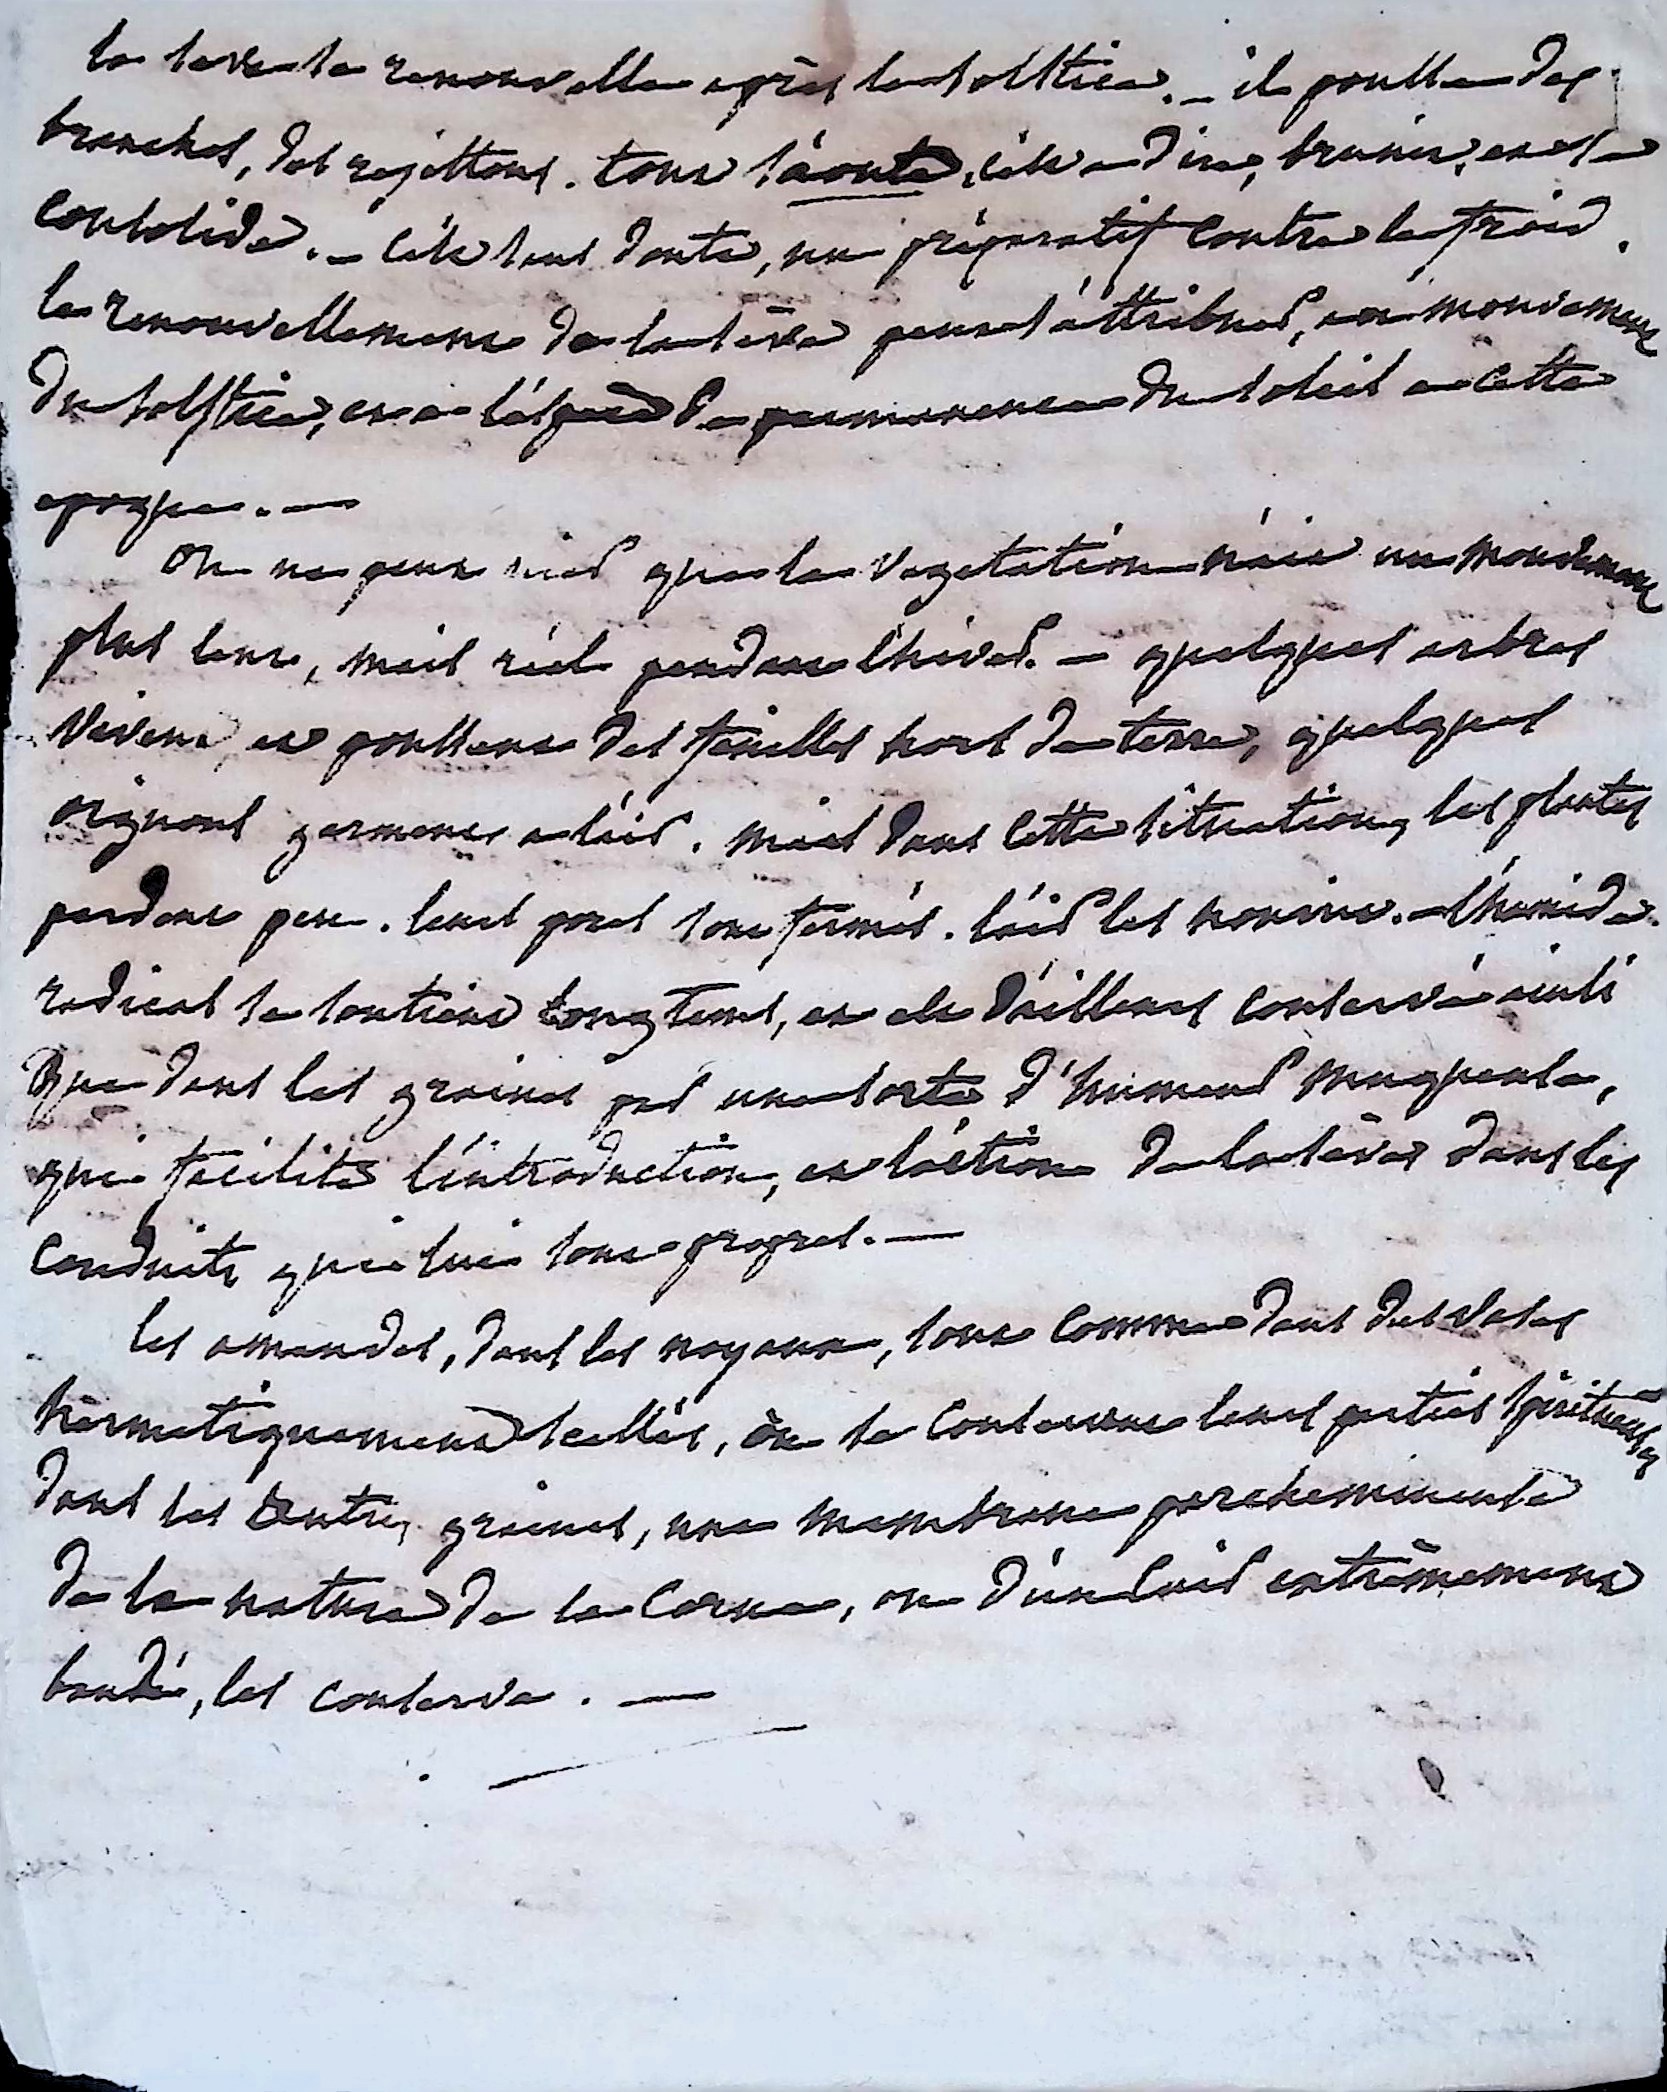 la seve se renouvelle après le solstice. – il pousse des
branches, des rejettons. tout s'aoute, c'est a dire, brunit, et se
consolide. – c'est sans doute, un préparatif contre le froid.
le renouvellement de la sève peut s'attribuer, au mouvement
du solstice, et a l'espece de permanence du soleil a cette
epoque. —
On ne peut nier que la vegetation n'ait un mouvement
plus lent, mais réel pendant l'hiver. – quelques arbres
vivent et poussent des feuilles hors de terre, quelques
oignons germent a l'air. mais dans cette situation, les plantes
perdent peu. leurs pores sont fermés. l'air les nourrit. l'humide
radical se soutient longtems, et est d'ailleurs conservé ainsi
que dans les graines par une sorte d'humeur muqueuse,
qui facilite l'introduction, et l'action de la sève dans les
conduits qui lui sont propres. —
les amandes, dans les noyaux, sont comme dans des vases
hermetiquement scellés, où se conservent leurs parties spiritueuses
dans les autres graines, une membrane parchemineuse
de la nature de la corne, ou d'un cuir extrêmement
bandé, les conserve. —